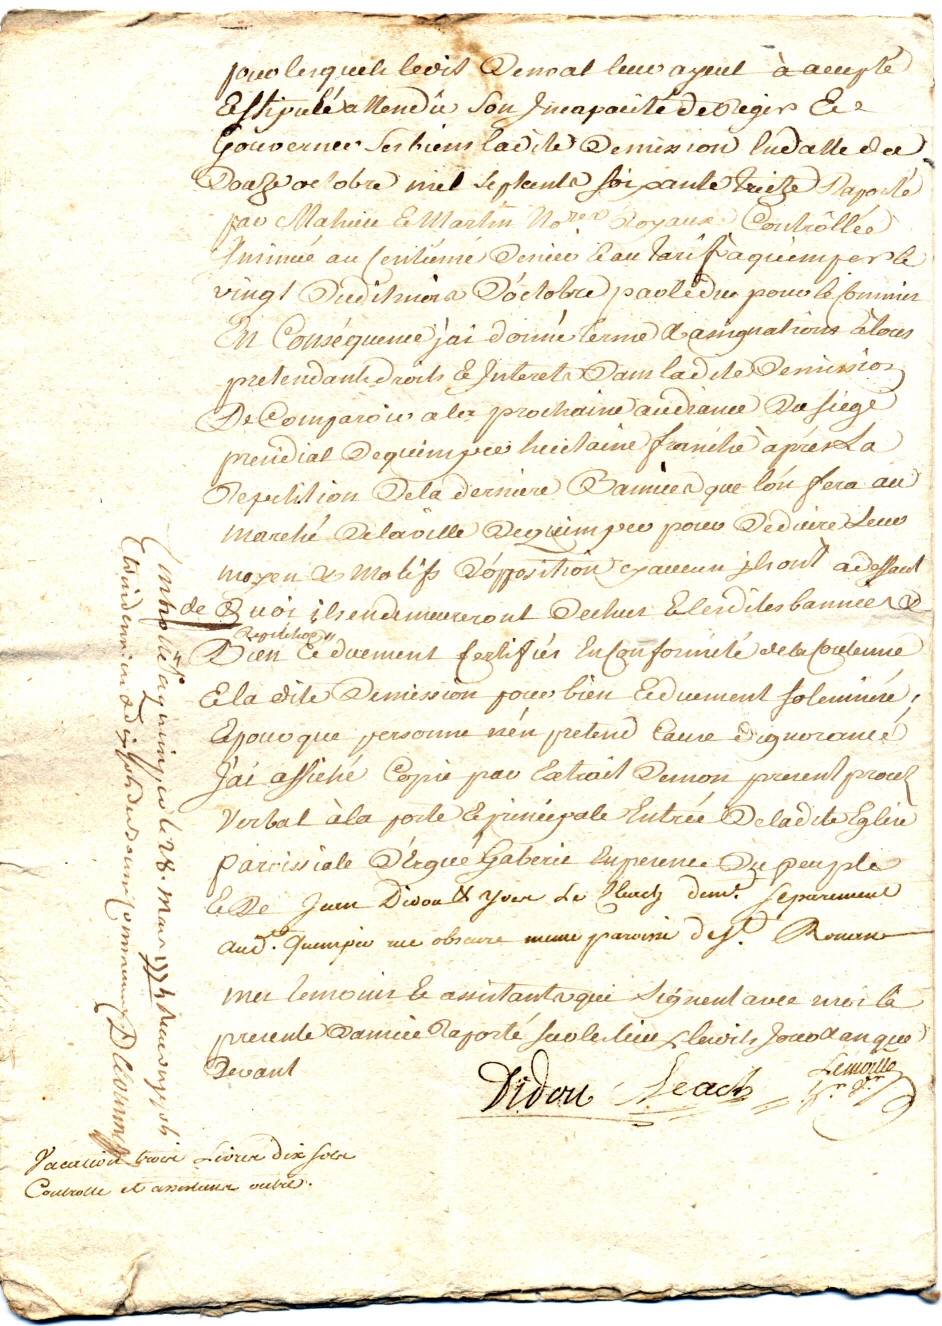 pour lesquels ledit Denial leur ayeul à accepté
Et stipulé attendu son Incapacité de Regir Et
Gouverner ses biens ladite Demission En datte du
Douze octobre mil sept cents soixante treize Raporté
par Mahieu & Martin No.res Royaux Contrôllée
Insinué au Centiéme Denier & au tarif à quimper le
vingt Dudit mois D'octobre par le du pour le Commis
En Conséquence j'ai donné terme & assignations à tous
pretendants droits & Interets Dans ladite Demission
De Comparoir a la prochaine audiance Du siege
presidial De quimper huitaine franche aprés La
Repetition De la derniere Bannie que l'on fera au
marché De la ville De quimper pour Deduire Leur
moyen & Motifs D'opposition sy aucun ils ont a deffaut
de Quoi ils en demeureront Dechus & lesdites bannies &
Repetitions
Bien & duement Certifiés En Conformité de la Coutume
& la dite Demission pour bien & duement solemnisé;
Et pour que personne n'en pretend Cause d'ignorance
J'ai affiché Copie par Extrait De mon present procés
Verbal à la porte & principale Entrée De ladite Eglise
Paroissiale D'Ergué Gaberic En presence Du peuple
Et De Jean Didou & Yves Le Cleach dem.t separement
aud.t quimper rue obscure meme paroisse de S.t Ronan
mes temoins & assistants qui signent avec moi la
presente Bannie Raporté sur le lieu & ledits Jour & an que
Devant
Didou Leach Lemoille
Controllé a quimper le 28 Mars 1774 Reçu
Vacation trois Livres dix sols
Controlle et assistance outre.